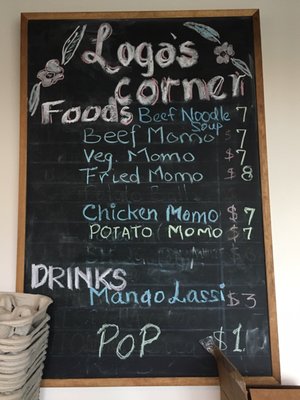 Loga's
corner
Foods Beef Noodle Soup 7
Beef Momo $7
Veg. Momo $7
Fried Momo $8
Chicken Momo $7
POTATO MOMO $7
DRINKS
Mango Lassi $3
POP $1